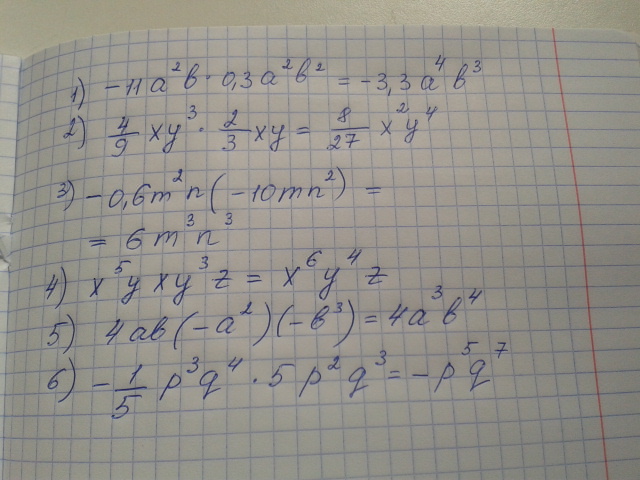 1) -11a²b · 0,3a²b² = -3,3a⁴b³
2) 4/9 xy³ · 2/3 xy = 8/27 x²y⁴
3) -0,6m²n(-10mn²) =
= 6m³n³
4) x⁵yxy³z = x⁶y⁴z
5) 4ab(-a²)(-b³) = 4a³b⁴
6) -1/5 p³q⁴ · 5p²q³ = -p⁵q⁷